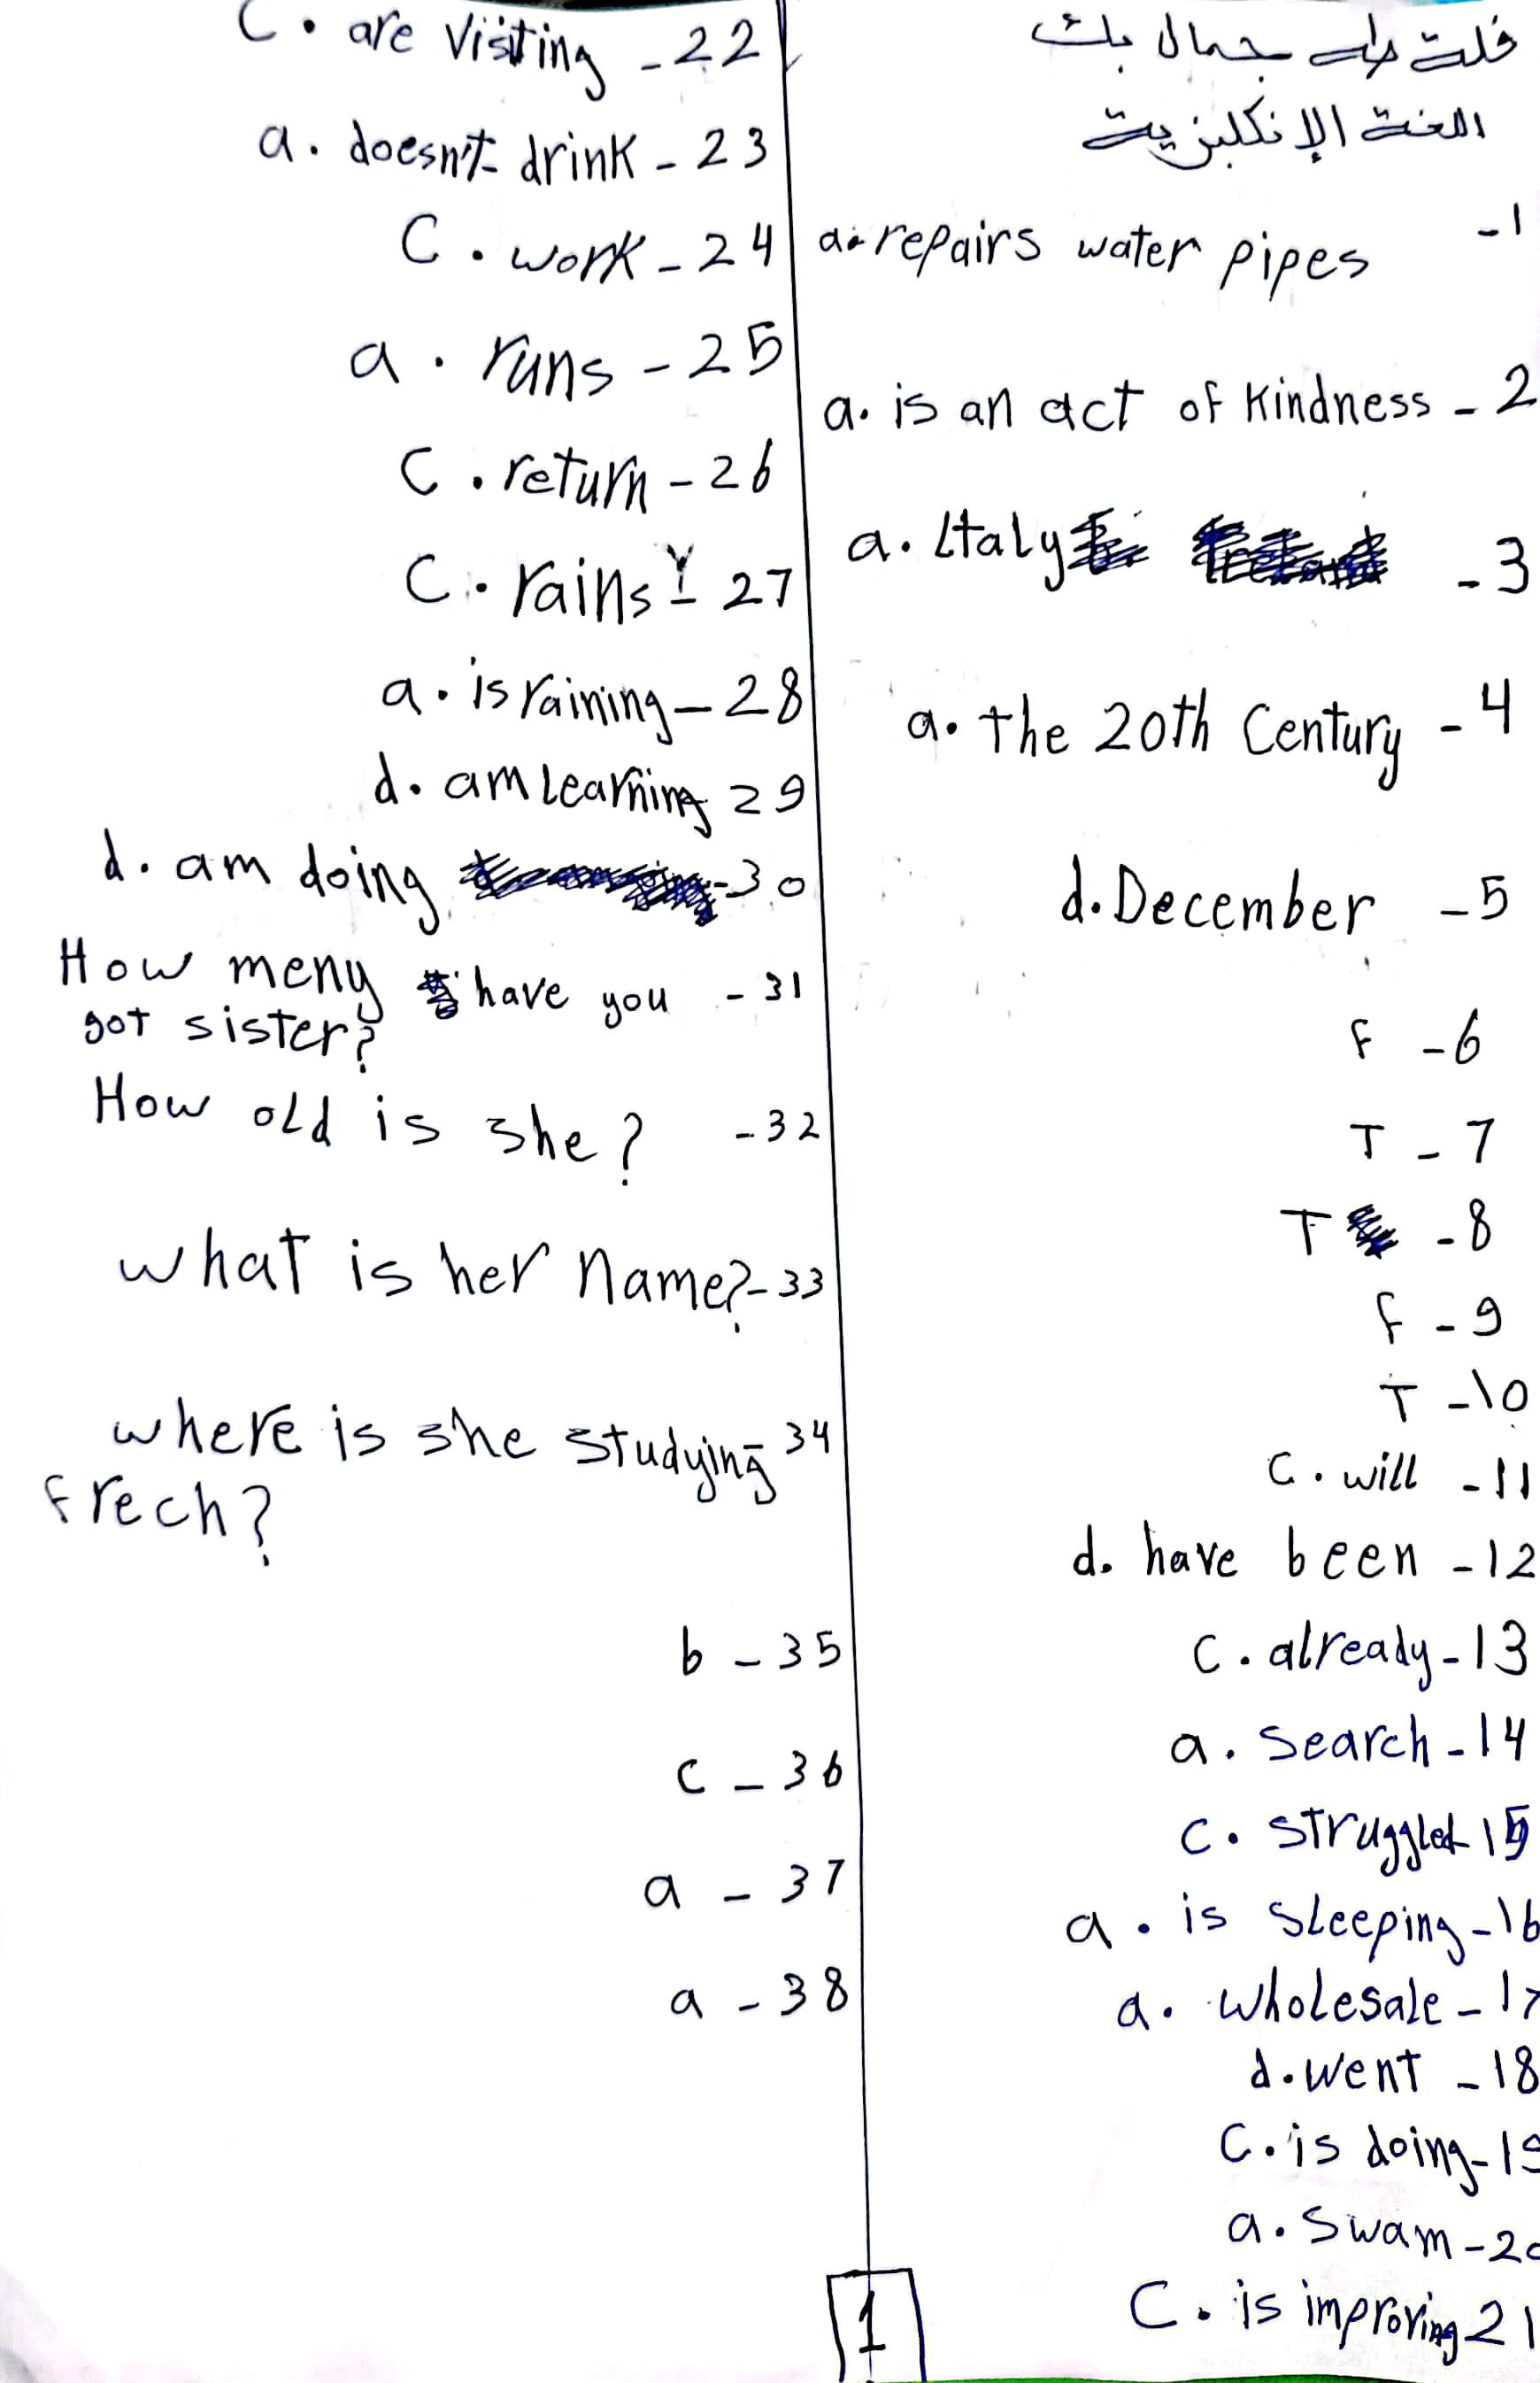 جمال
اللغة الإنكليزية
a. repairs water pipes -1
a. is an act of kindness - 2
a. Italy - 3
a. the 20th Century - 4
d. December - 5
F - 6
T - 7
T - 8
F - 9
T - 10
C. will - 11
d. have been - 12
C. already - 13
a. search - 14
C. struggled 15
a. is sleeping - 16
a. wholesale - 17
d. went - 18
C. is doing - 19
a. swam - 20
C. is improving 21
C. are visiting - 22
a. doesn't drink - 23
C. work - 24
a. runs - 25
C. return - 26
C. rains - 27
a. is raining - 28
d. am learning 29
d. am doing - 30
How meny have you - 31
got sister?
How old is she? - 32
what is her name? - 33
where is she studying - 34
frech?
b - 35
c - 36
a - 37
a - 38
1